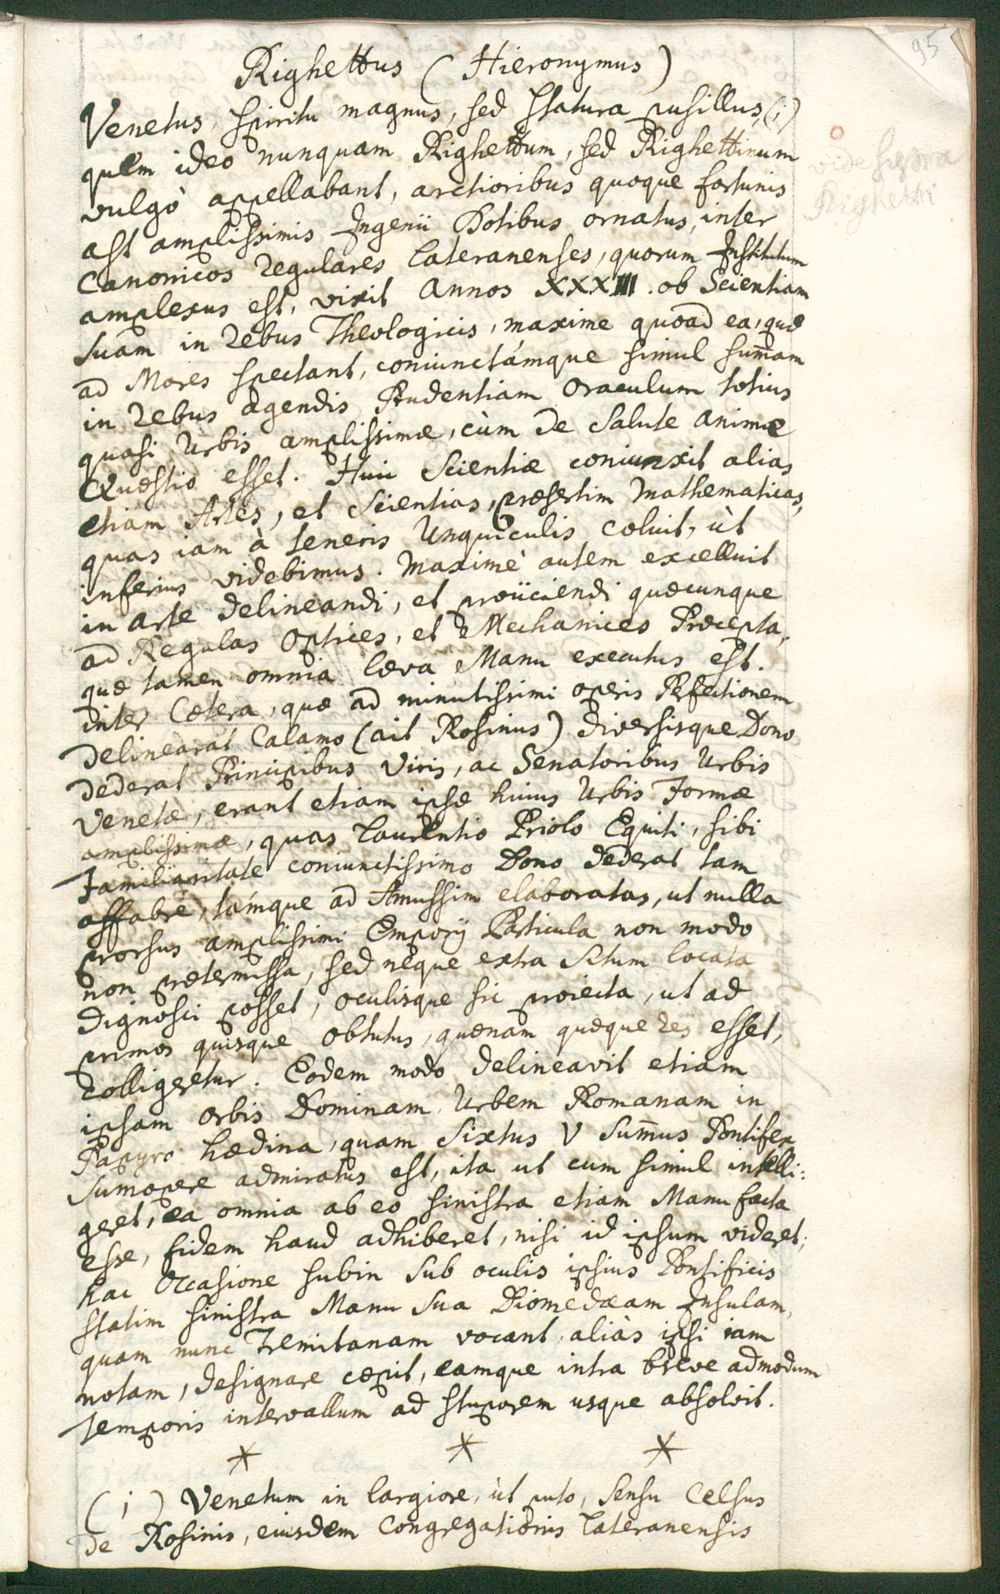 95
Righettus (Hieronymus)
Venetus, spiritu magnus, sed statura pusillus, (i)
quem ideo nunquam Righettum, sed Righettinum
vulgò appellabant, arctioribus quoque fortunis
ast amplissimis Ingenii Dotibus ornatus, inter
Canonicos Regulares Lateranenses, quorum Institutum
amplexus est, vixit Annos XXXIII. ob Scientiam
suam in rebus Theologicis, maxime quoad ea, quæ
ad Mores spectant, coniunctámque simul sum̄am
in rebus agendis Prudentiam Oraculum totius
quasi Urbis amplissimæ, cùm de Salute animæ
Quæstio esset. Huic Scientiæ coniunxit alias
etiam Artes, et Scientias, præsertim Mathematicas,
quas iam à teneris Unquiculis coluit, ùt
inferius videbimus. Maximè autem excelluit
in arte delineandi, et proiiciendi quæcunque
ad Regulas Optices, et Mechanices Præcepta,
quæ tamen omnia læva Manu executus est.
Inter Cætera, quæ ad minutissimi operis Perfectionem
delinearat Calamo (ait Rosinus) diversisque Dono
dederat Principibus Viris, ac Senatoribus Urbis
Venetæ, erant etiam ipsæ huius Urbis Formæ
amplissimæ, quas Laurentio Priolo Equiti, sibi
Familiaritate coniunctissimo Dono dederat tam
affabre, támque ad Amussim elaboratas, ut nulla
prorsus amplissimi Emporij Particula non modo
non prætermissa, sed neque extra Situm locata
dignosci posset, oculisque sic proiecta, ut ad
primos quisque obtutus, quænam quæque res esset,
colligeretur. Eodem modo delineavit etiam
ipsam Orbis Dominam, Urbem Romanam in
Papyro hædina, quam Sixtus V Sum̄us Pontifex
sumopere admiratus est, ita ut cum simul intelli:
geret, ea omnia ab eo sinistra etiam Manu facta
esse, fidem haud adhiberet, nisi id ipsum videret;
hac Occasione subin sub oculis ipsius Pontificis
statim sinistra Manu sua Diomedæam Insulam,
quam nunc Tremitanam vocant, aliàs ipsi iam
notam, designare cæpit, eamque intra breve admodum
Temporis intervallum ad stuporem usque absolvit.
* * *
(i) Venetum in largiore, ùt puto, Sensu Celsus
de Rosinis, eiusdem Congregationis Lateranensis
vide supra
Righetti